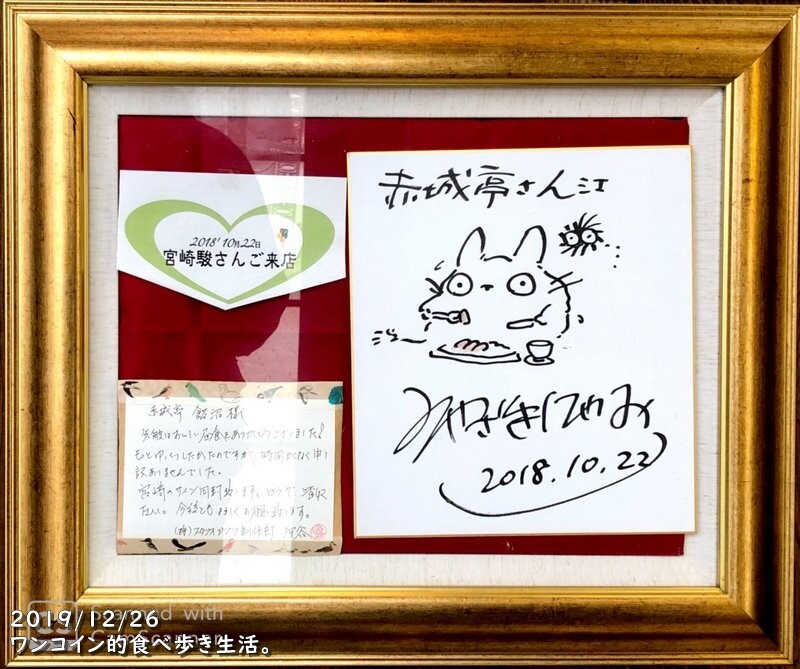 2018'10月22日
宮崎駿さんご来店
赤城亭 飯沼様
先般はおいしい昼食をありがとうございました！
もっとゆっくりしたかったのですが、時間がなく申し
訳ありませんでした。
宮崎のサイン同封致します。
今後ともよろしくお願い致します。
赤城亭さん江
みやざきはやお
2018.10.22
Scanned with
CamScanner
2019/12/26
ワンコイン的食べ歩き生活。